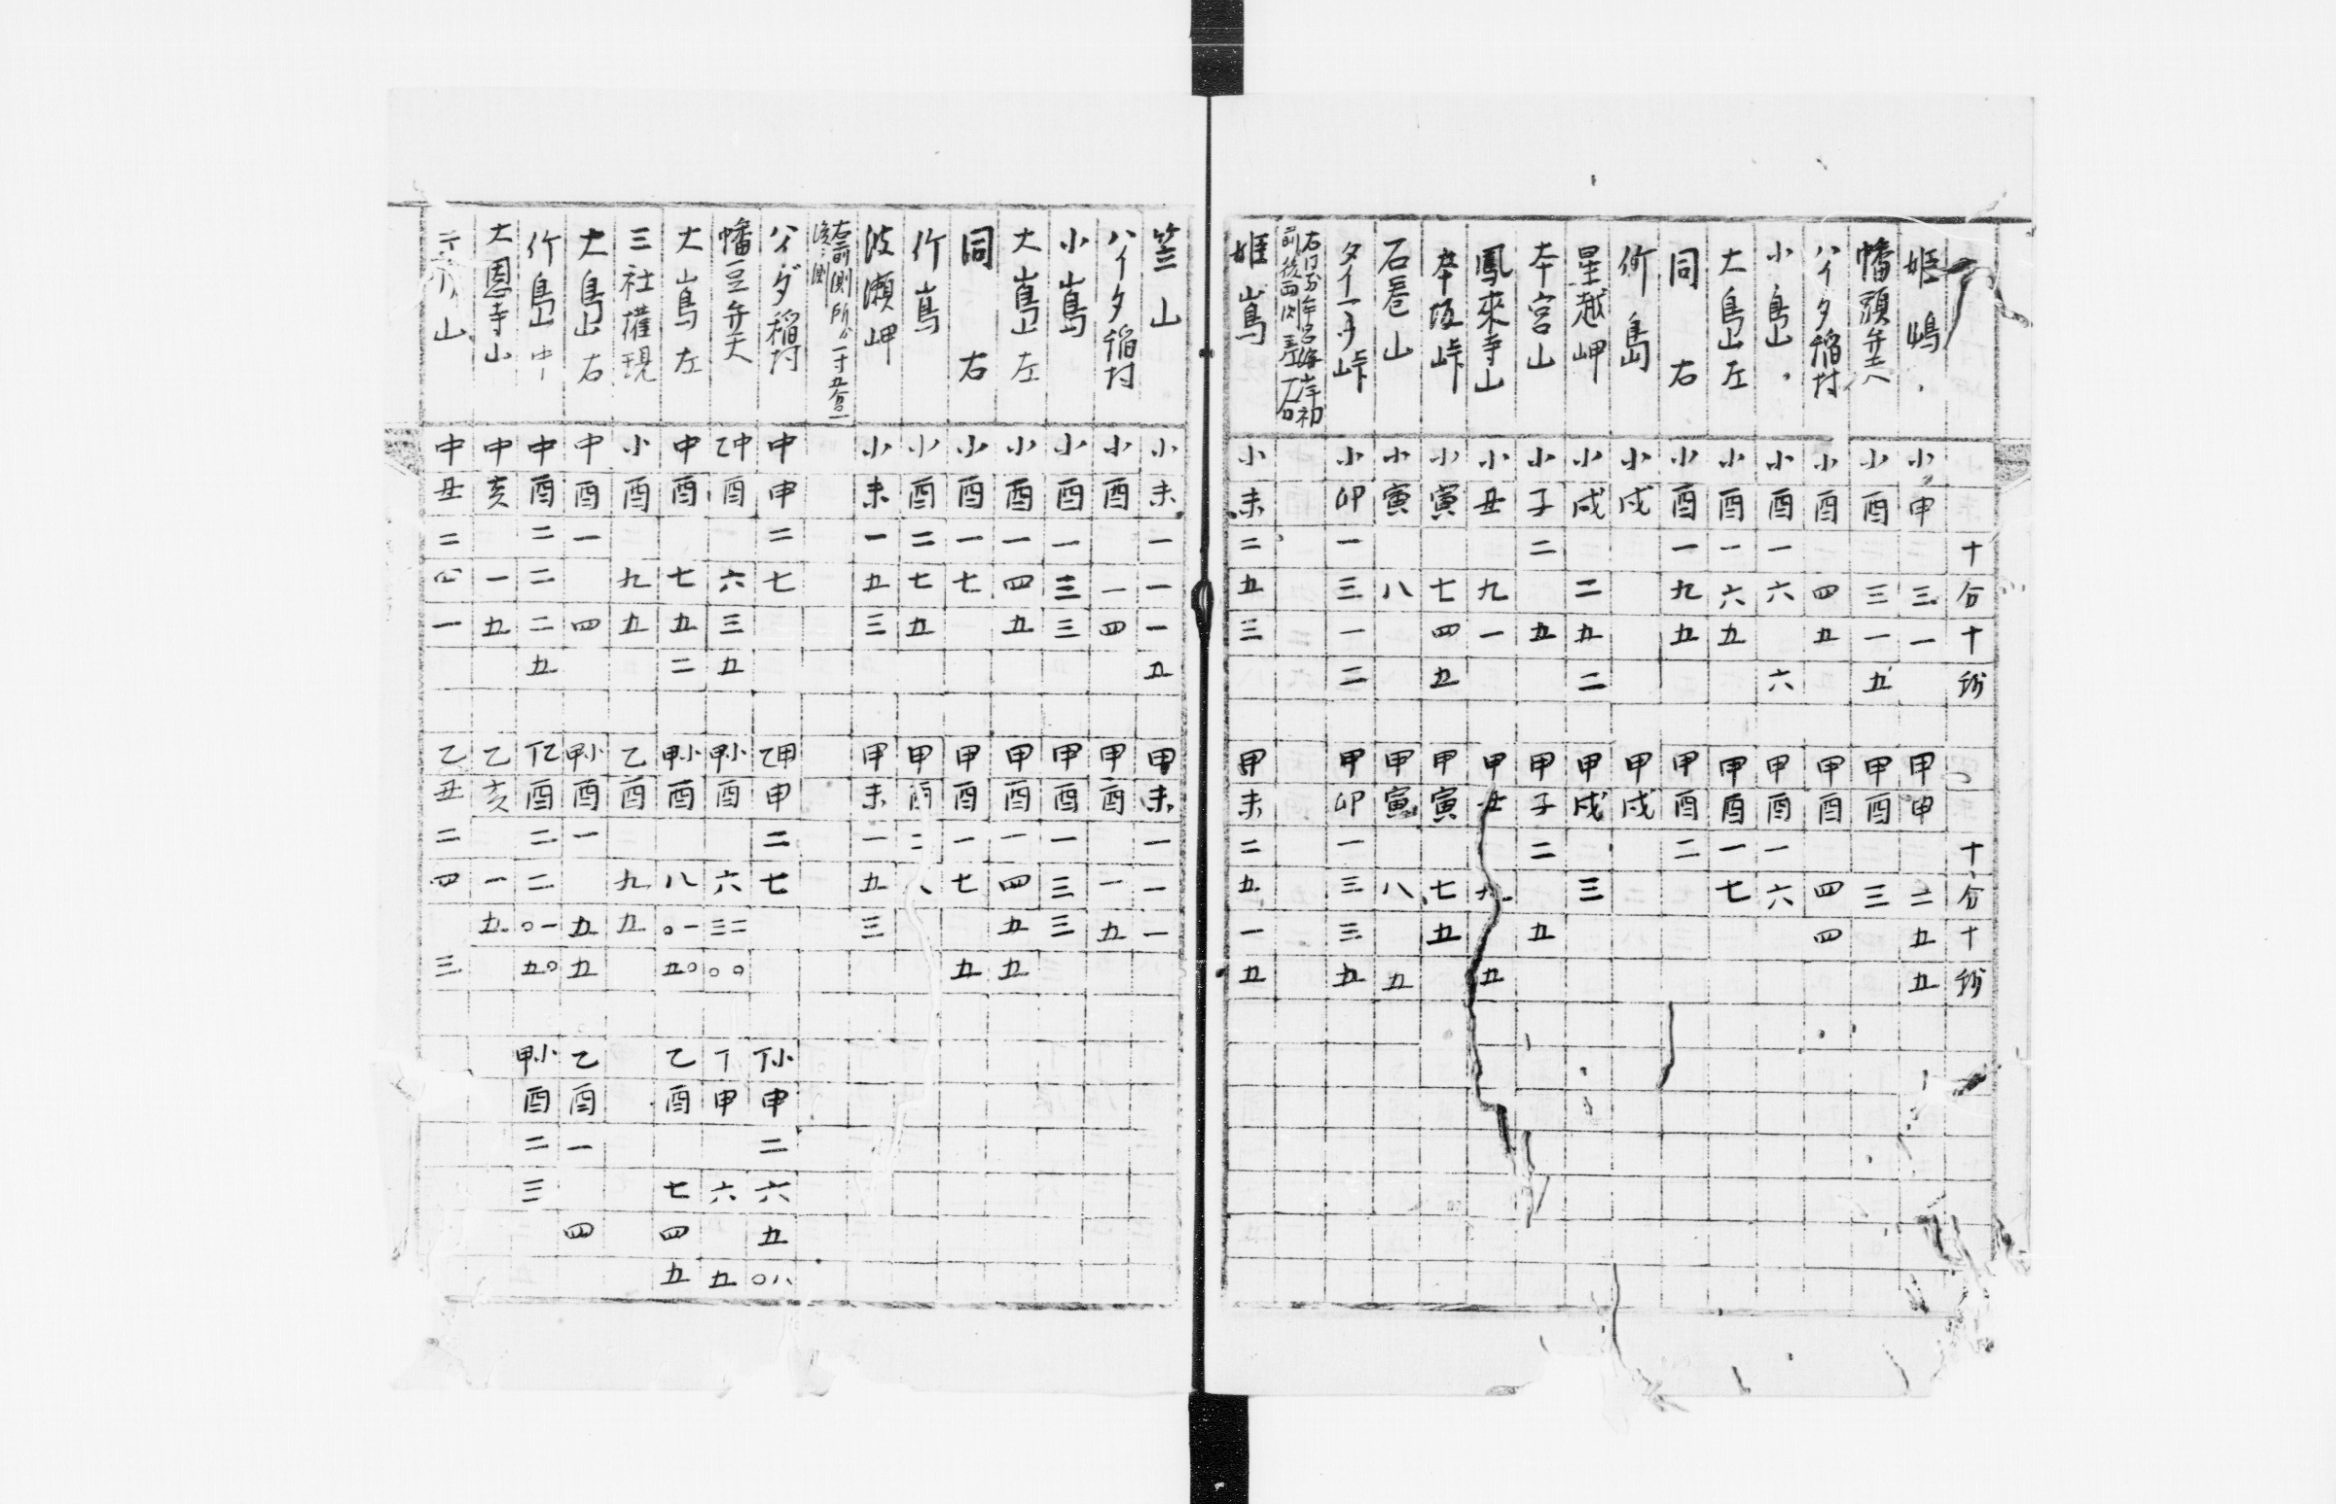 十分十秒 十分十秒
姫嶋 小申三一 甲申二五五
幡頭弁天 小酉三一五 甲酉三
ハイタ稲村 小酉四五 甲酉四四
小島山 小酉一六六 甲酉一六
大島山左 小酉一六五 甲酉一七
同右 小酉一九五 甲酉二
竹島 小戌 甲戌
星越岬 小戌二五二 甲戌三
本宮山 小子二五 甲子二五
鳳來寺山 小丑九一 甲丑九五
本坂峠 小寅七四五 甲寅七五
石巻山 小寅八 甲寅八五
タイ一子峠 小卯一三一二 甲卯一三三五
姫嶌 小未二五三 甲未二五一五
笠山 小未一一一五 甲未一一一
ハイタ稲村 小酉一四 甲酉一五
小嶌 小酉一三三 甲酉一三三
大嶌山左 小酉一四五 甲酉一四五五
同右 小酉一七 甲酉一七五
竹嶌 小酉二七五 甲酉二八
波瀬岬 小未一五三 甲未一五三
右前測所ゟ一寸五分
ハイダ稲村 中申二七 乙甲申二七 丁小申二六五八〇
幡豆弁天 乙中酉六三五 甲小酉六二三〇〇 丁甲六五
大嶌左 中酉七五二 甲小酉八一〇〇五 乙酉七四五
三社権現 小酉九五 乙酉九五
大島山右 中酉一四 甲小酉一五五 乙酉一四
竹島山中 中酉二二二五 丁乙酉二二一〇〇五 甲小酉二三
大恩寺山 中亥一五 乙亥一五
山 中丑二四一 乙丑二四三